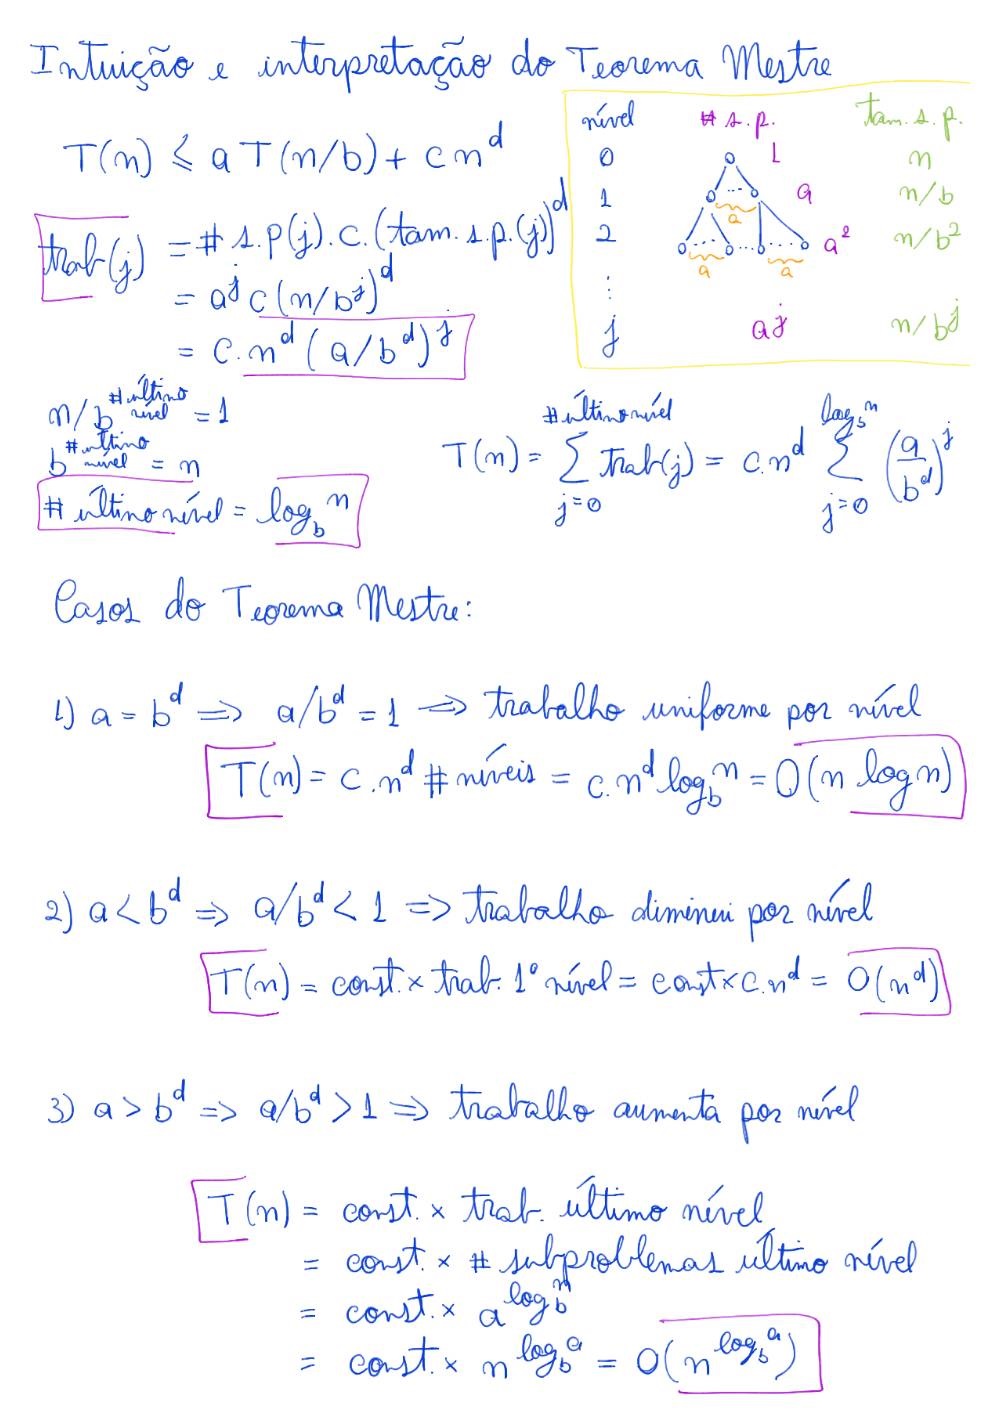 Intuição e interpretação do Teorema Mestre
T(n) ≤ a T(n/b) + c n^d
nível # s.p. tam. s.p.
0 1 n
1 a n/b
a
2 a² n/b²
a a
⋮
j a^j n/b^j
trab(j) = # s.p(j) . c. (tam. s.p.(j))^d
= a^j c (n/b^j)^d
= c. n^d (a/b^d)^j
n/b^#último nível = 1
b^#último nível = n
# último nível = log_b n
T(n) = Σ_{j=0}^{#último nível} trab(j) = c.n^d Σ_{j=0}^{log_b n} (a/b^d)^j
Casos do Teorema Mestre:
1) a = b^d => a/b^d = 1 => trabalho uniforme por nível
T(n) = c.n^d # níveis = c.n^d log_b n = O(n log n)
2) a < b^d => a/b^d < 1 => trabalho diminui por nível
T(n) = const. × trab. 1º nível = const × c.n^d = O(n^d)
3) a > b^d => a/b^d > 1 => trabalho aumenta por nível
T(n) = const. × trab. último nível
= const. × # subproblemas último nível
= const. × a^{log_b n}
= const. × n^{log_b a} = O(n^{log_b a})